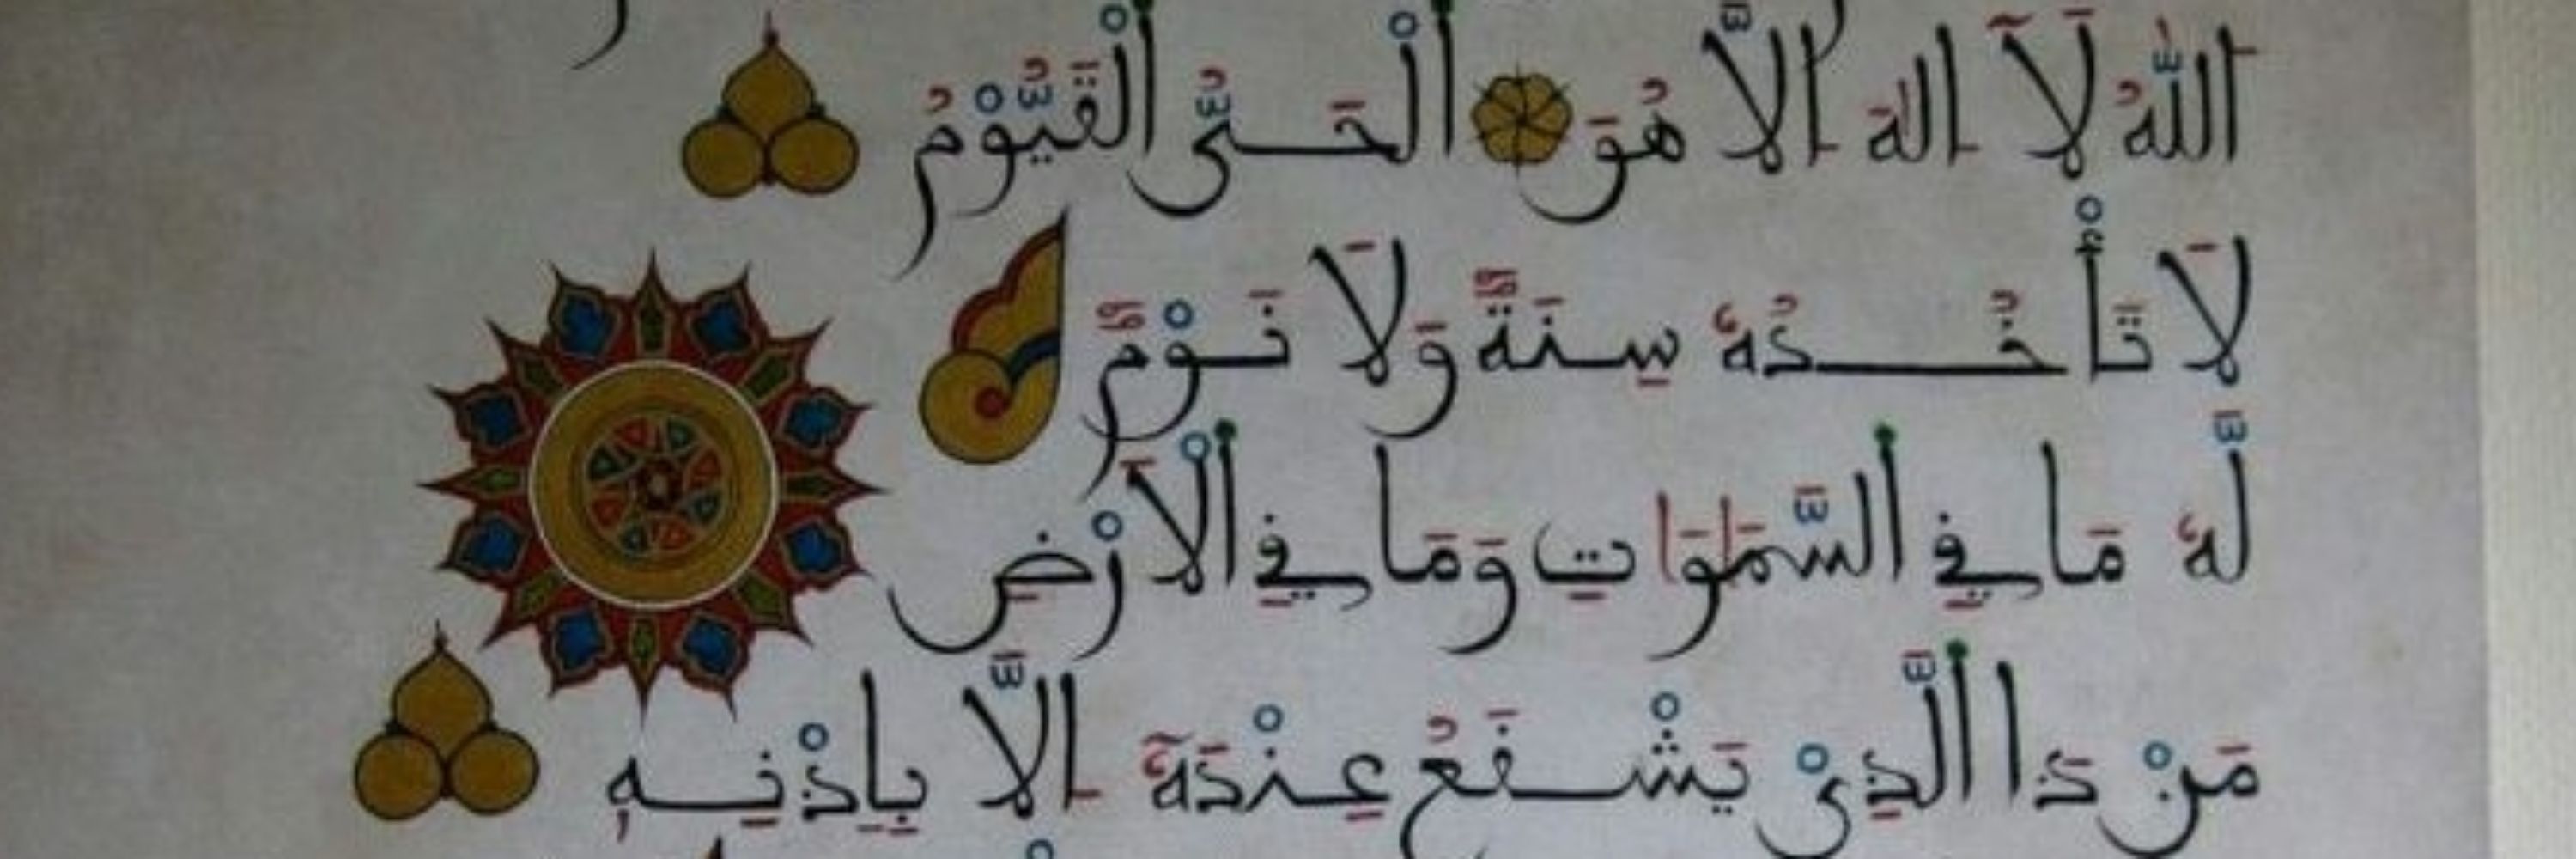 اللَّهُ لَآ إِلَٰهَ إِلَّا هُوَ ٱلْحَىُّ ٱلْقَيُّوْمُ
لَا تَأْخُذُهُ سِنَةٌ وَلَا نَوْمٌ
لَّهُ مَا فِي ٱلسَّمَٰوَٰتِ وَمَا فِي ٱلْأَرْضِ
مَنْ ذَا ٱلَّذِىْ يَشْفَعُ عِنْدَهُٓ إِلَّا بِإِذْنِهِ